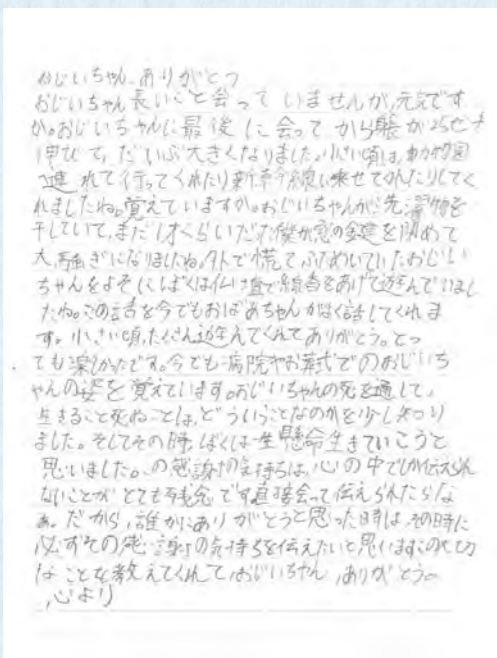 おじいちゃん、ありがとう
おじいちゃん長いこと会っていませんが、元気です
か。おじいちゃんに最後に会ってから背が25センチ
伸びて、だいぶ大きくなりました。小さい頃は、動物園
に連れて行ってくれたり新幹線に乗せてくれたりしてく
れましたね。覚えていますか。おじいちゃんが洗濯物を
干していて、まだ1才くらいだった僕が窓の鍵を閉めて
大騒ぎになりましたね。外で慌てふためいていたおじい
ちゃんをよそにぼくは仏壇で線香をあげて遊んでいまし
たね。この話を今でもおばあちゃんがよく話してくれま
す。小さい頃、たくさん遊んでくれてありがとう。とっ
ても楽しかったです。今でも病院やお葬式でのおじいち
ゃんの姿を覚えています。おじいちゃんの死を通して、
生きること死ぬことは、どういうことなのかを少し知り
ました。そしてその時、ぼくは一生懸命生きていこうと
思いました。この感謝の気持ちは、心の中でしか伝えられ
ないことがとても残念です。直接会って伝えられたらな
あ。だから、誰かにありがとうと思った時は、その時に
必ずその感謝の気持ちを伝えたいと思います。この大切
なことを教えてくれて、おじいちゃん、ありがとう。
心より